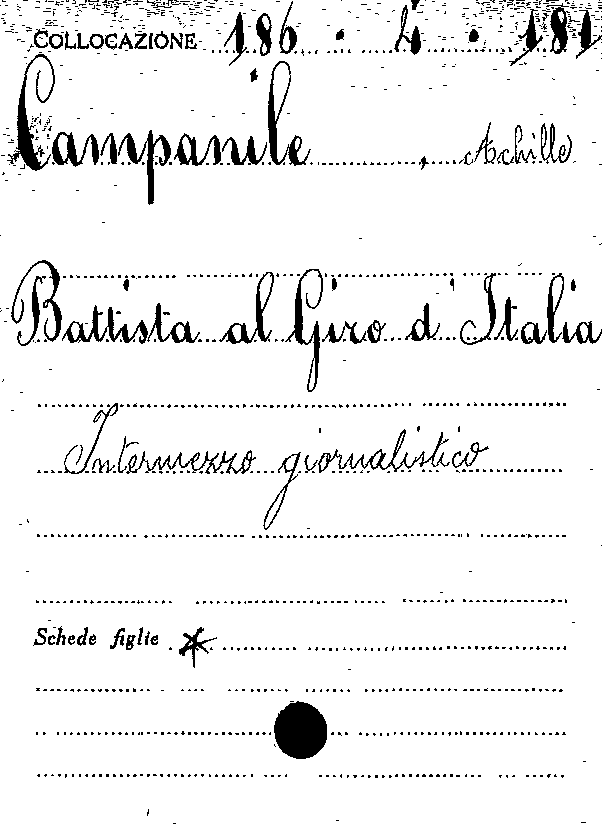 COLLOCAZIONE 186 . 4 . 181
Campanile, Achille
Battista al Giro d'Italia
Intermezzo giornalistico
Schede figlie *